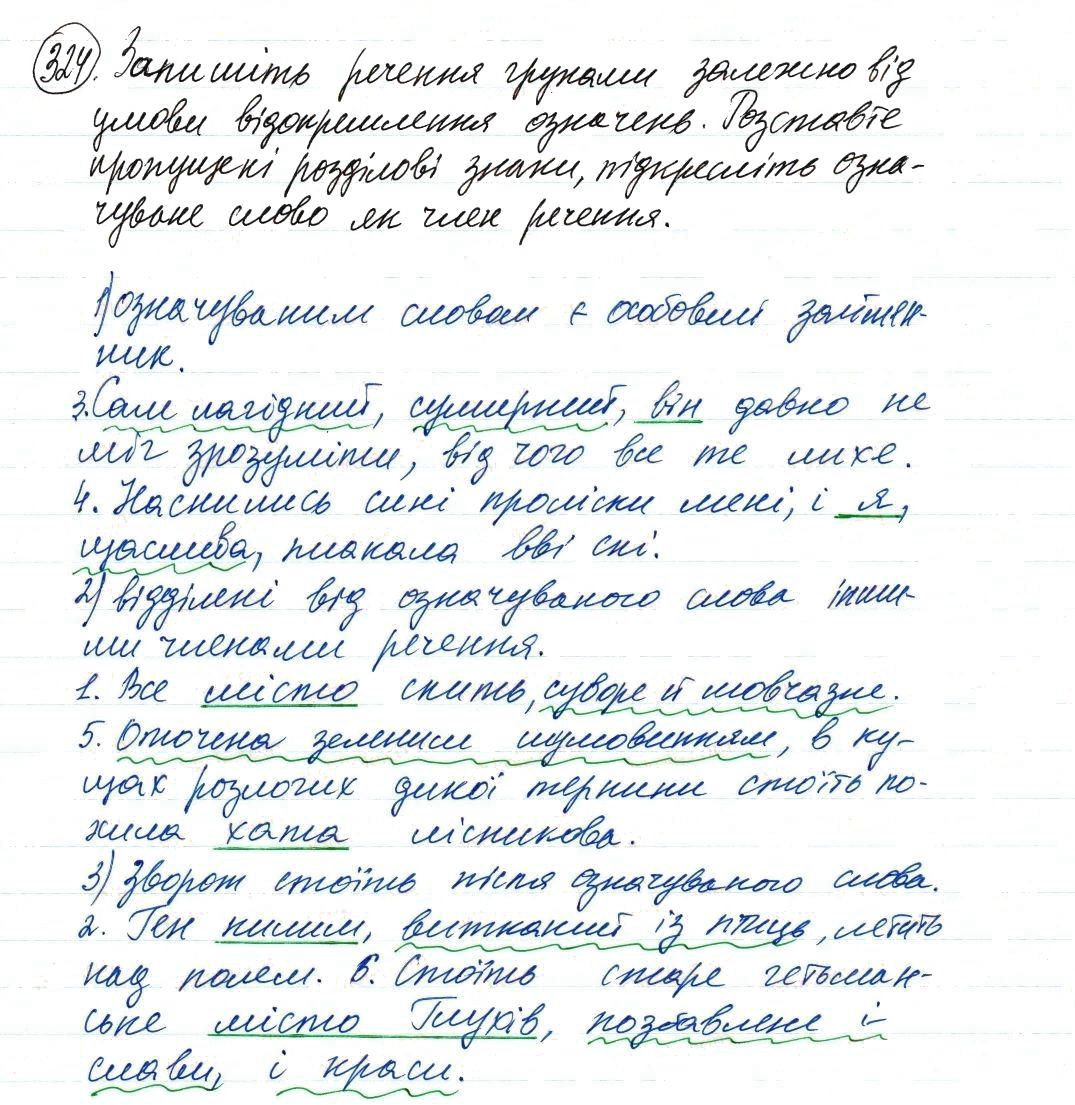 324. Запишіть речення групами залежно від
умови відокремлення означень. Розставте
пропущені розділові знаки, підкресліть озна-
чуване слово як член речення.
1) означуваним словом є особовий займен-
ник.
3. Сам лагідний, сумирний, він давно не
міг зрозуміти, від чого все те лихе.
4. Наснились сині проліски мені, і я,
щаслива, плакала вві сні.
2) відділені від означуваного слова інши-
ми членами речення.
1. Все місто спить, суворе й мовчазне.
5. Оточена зеленим шумовинням, в ку-
щах розлогих дикої тернини стоїть по-
хила хата лісникова.
3) Зворот стоїть після означуваного слова.
2. Ген килим, витканий із птиць, летить
над полем. 6. Стоїть старе гетьман-
ське місто Глухів, позбавлене і
слави, і краси.